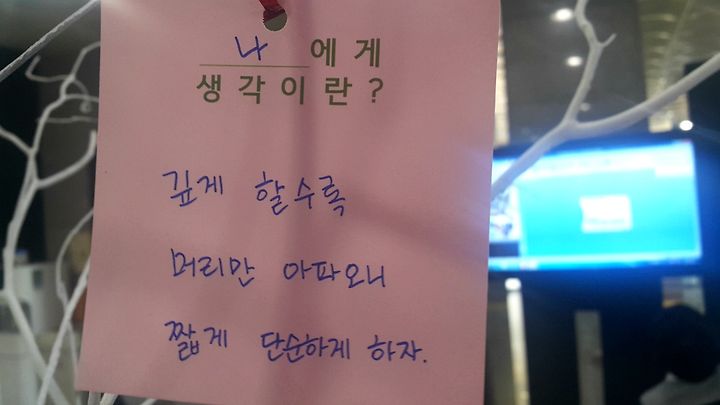 나 에게
생각이란?
깊게 할수록
머리만 아파오니
짧게 단순하게 하자.